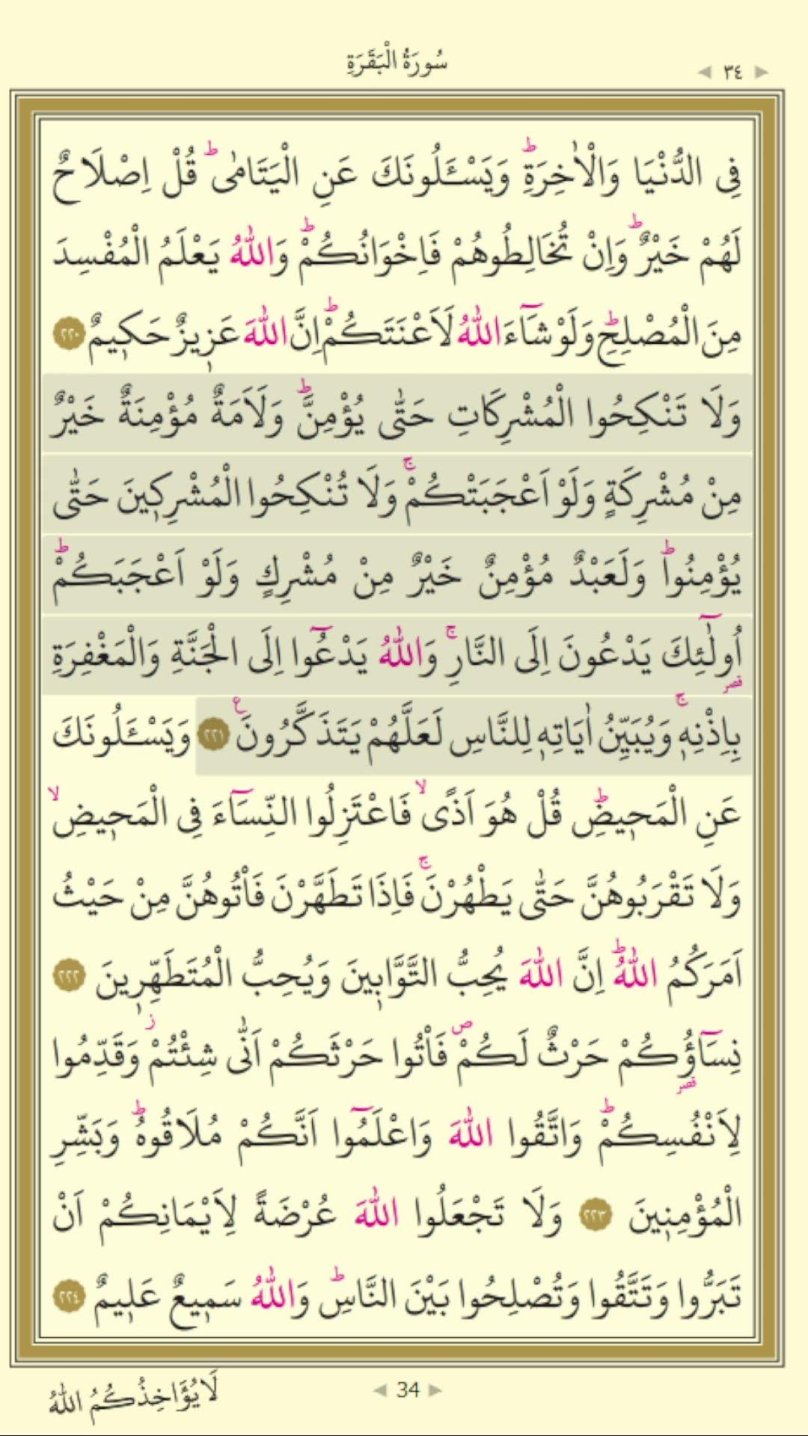 سُورَةُ الْبَقَرَةِ
٣٤
فِى الدُّنْيَا وَالْاٰخِرَةِۜ وَيَسْـَٔلُونَكَ عَنِ الْيَتَامٰىۜ قُلْ اِصْلَاحٌ
لَهُمْ خَيْرٌۜ وَاِنْ تُخَالِطُوهُمْ فَاِخْوَانُكُمْۜ وَاللّٰهُ يَعْلَمُ الْمُفْسِدَ
مِنَ الْمُصْلِحِۜ وَلَوْ شَٓاءَ اللّٰهُ لَاَعْنَتَكُمْۜ اِنَّ اللّٰهَ عَزٖيزٌ حَكٖيمٌ ٢٢٠
وَلَا تَنْكِحُوا الْمُشْرِكَاتِ حَتّٰى يُؤْمِنَّۜ وَلَاَمَةٌ مُؤْمِنَةٌ خَيْرٌ
مِنْ مُشْرِكَةٍ وَلَوْ اَعْجَبَتْكُمْۚ وَلَا تُنْكِحُوا الْمُشْرِكٖينَ حَتّٰى
يُؤْمِنُواۜ وَلَعَبْدٌ مُؤْمِنٌ خَيْرٌ مِنْ مُشْرِكٍ وَلَوْ اَعْجَبَكُمْۜ
اُولٰٓئِكَ يَدْعُونَ اِلَى النَّارِۚ وَاللّٰهُ يَدْعُٓوا اِلَى الْجَنَّةِ وَالْمَغْفِرَةِ
قصر
بِاِذْنِهٖۚ وَيُبَيِّنُ اٰيَاتِهٖ لِلنَّاسِ لَعَلَّهُمْ يَتَذَكَّرُونَ ع ٢٢١ وَيَسْـَٔلُونَكَ
عَنِ الْمَحٖيضِۜ قُلْ هُوَ اَذًىۙ فَاعْتَزِلُوا النِّسَٓاءَ فِى الْمَحٖيضِۙ
وَلَا تَقْرَبُوهُنَّ حَتّٰى يَطْهُرْنَۚ فَاِذَا تَطَهَّرْنَ فَاْتُوهُنَّ مِنْ حَيْثُ
اَمَرَكُمُ اللّٰهُۜ اِنَّ اللّٰهَ يُحِبُّ التَّوَّابٖينَ وَيُحِبُّ الْمُتَطَهِّرٖينَ ٢٢٢
نِسَٓاؤُ۬كُمْ حَرْثٌ لَكُمْ ص فَاْتُوا حَرْثَكُمْ اَنّٰى شِئْتُمْ ز وَقَدِّمُوا
قصر
لِاَنْفُسِكُمْۜ وَاتَّقُوا اللّٰهَ وَاعْلَمُٓوا اَنَّكُمْ مُلَاقُوهُۜ وَبَشِّرِ
الْمُؤْمِنٖينَ ٢٢٣ وَلَا تَجْعَلُوا اللّٰهَ عُرْضَةً لِاَيْمَانِكُمْ اَنْ
تَبَرُّوا وَتَتَّقُوا وَتُصْلِحُوا بَيْنَ النَّاسِۜ وَاللّٰهُ سَمٖيعٌ عَلٖيمٌ ٢٢٤
34
لَا يُؤَاخِذُكُمُ اللّٰهُ